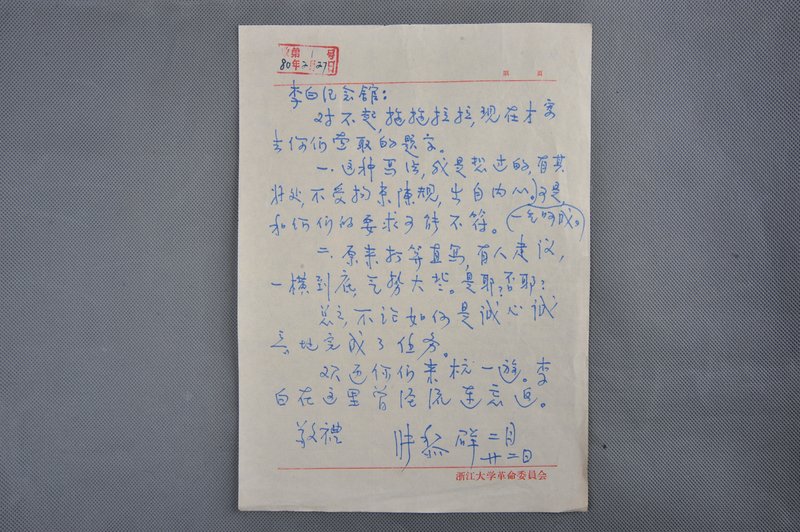 第 1 号
80年2月27日
第 页
李白纪念馆:
对不起,拖拖拉拉,现在才寄
去你们需取的题字。
一.这种写法,我是想过的,有其
好处,不受拘束陈规,出自内心。可是
和你们的要求可能不符。(一气呵成。)
二.原来打算直写,有人建议,
一横到底,气势大些。是耶?否耶?
总之,不论如何是诚心诚
意地完成了任务。
欢迎你们来杭一游。李
白在这里曾经流连忘返。
敬禮 黎 二月
廿二日
浙江大学革命委員会